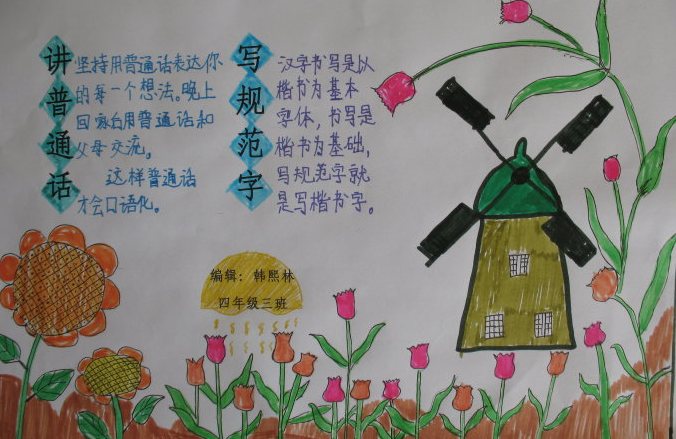 讲普通话
坚持用普通话表达你
的每一个想法。晚上
回家台用普通话和
父母交流。
这样普通话
才会口语化。
写规范字
汉字书写是以
楷书为基本
字体，书写是
楷书为基础，
写规范字就
是写楷书字。
编辑：韩熙林
四年级三班